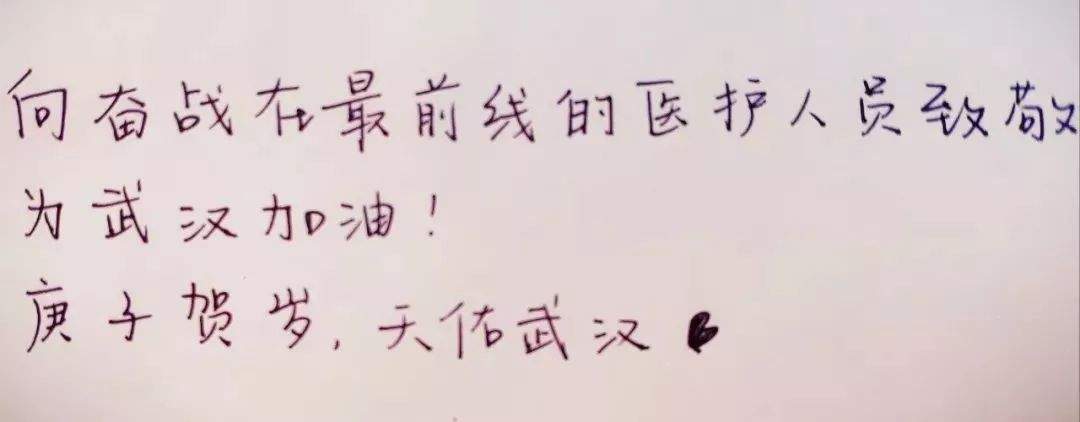 向奋战在最前线的医护人员致敬
为武汉加油!
庚子贺岁,天佑武汉